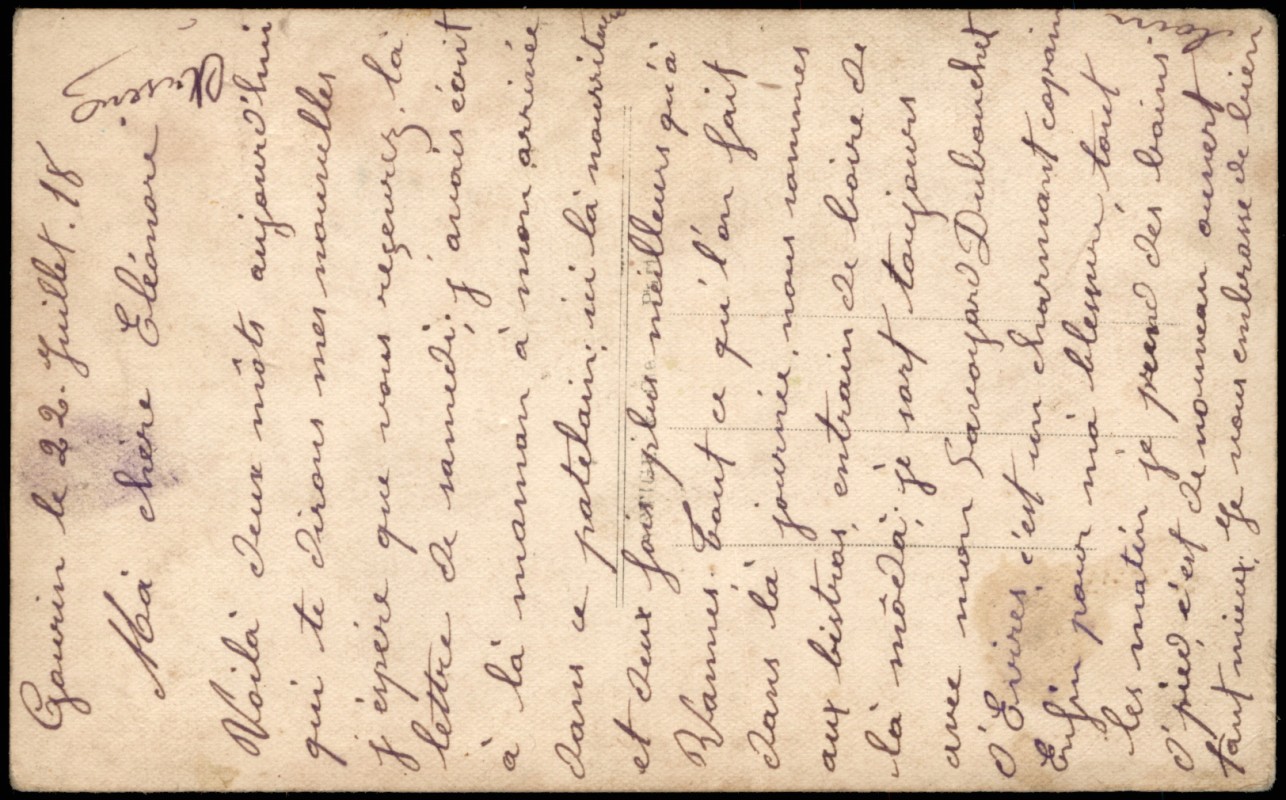 Gourin le 22. Juillet. 18
Mà chère Eléonore
Voilà deux môts aujourd'hui
qui te dirons mes nouvelles
j'espère que vous reçevrez là
lettre de samedi; j'avais écrit
à là maman à mon arrivée
dans ce patelain, ici là nourriture
et deux fois plus meilleurs qu'à
Vannes. Tout ce qu'l'on fait
dans là journée, nous sommes
aux bistros, entrain de boire de
là môdà, je sort toujours
avec mon Savoyard Dubouchet
d'Evires, c'est un charmant copain
Enfin pour mà blessure, tout
les matin je prend dés bains
d'pied c'est de nouveau ouvert
tant mieux. Je vous embrasse de bien
loin